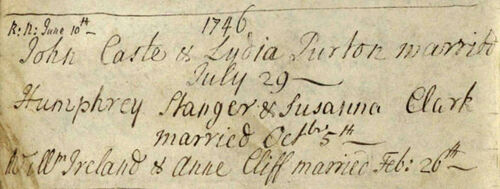 1746
R: N: June 10th
John Caste & Lydia Purton married
July 29
Humphrey Stanger & Susanna Clark
married Octbr 5th
Willm Ireland & Anne Cliff married Feb: 26th